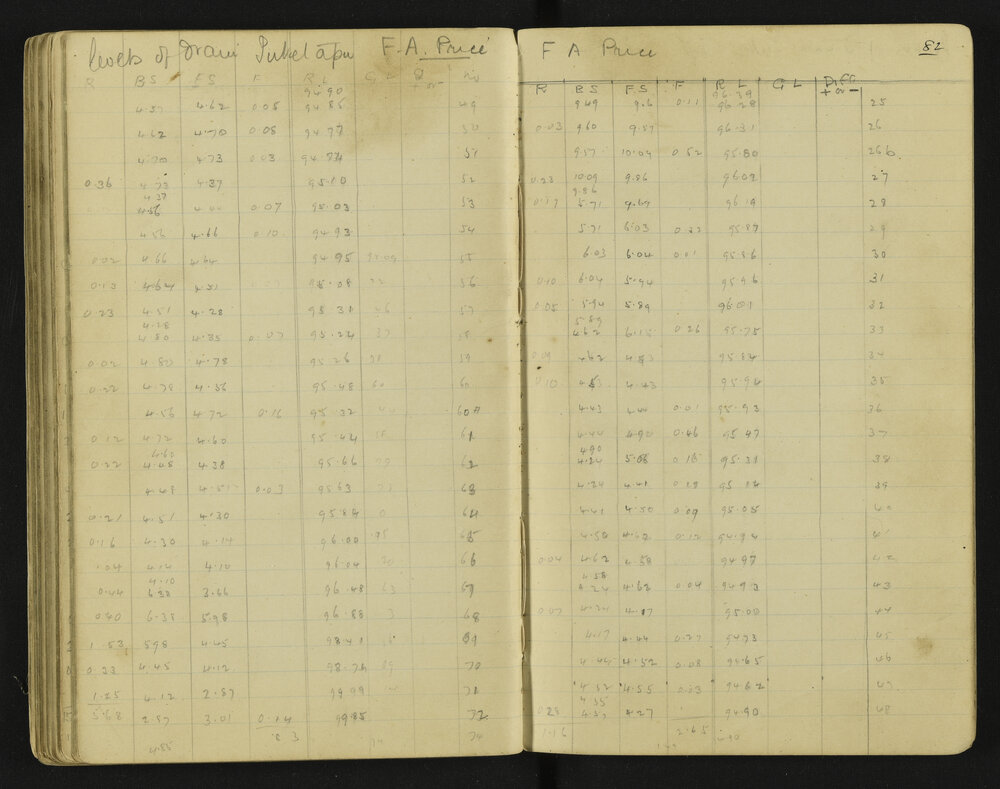 levels of drain Puketapu F. A. Price
R BS FS F RL GL + or - No
94.90
4.57 4.62 0.05 94.85 49
4.62 4.70 0.08 94.77 50
4.70 4.73 0.03 94.74 51
0.36 4.73 4.37 95.10 52
4.37
4.56 0.07 95.03 53
4.56 4.66 0.10 94.93 54
0.02 4.66 4.64 94.95 55
0.13 4.64 4.51 95.08 56
0.23 4.51 4.28 95.31 57
4.28
4.80 4.35 0.07 95.24 58
0.02 4.80 4.78 95.26 59
0.22 4.78 4.56 95.48 60
4.56 4.72 0.16 95.32 60A
0.12 4.72 4.60 95.44 61
4.60
0.22 4.48 4.38 95.66 62
4.48 4.51 0.03 95.63 63
0.21 4.51 4.30 95.84 64
0.16 4.30 4.14 96.00 65
.04 4.14 4.10 96.04 66
4.10
0.44 6.38 3.66 96.48 67
0.40 6.38 5.98 96.88 68
1.53 5.98 4.45 98.41 69
0.33 4.45 4.12 98.74 70
1.25 4.12 2.87 99.99 71
5.68 2.87 3.01 0.14 99.85 72
4.85 74
F A Price 82
R BS FS F RL GL Diff + or -
96.39
9.49 9.6 0.11 96.28 25
0.03 9.60 9.57 96.31 26
9.57 10.09 0.52 95.80 26b
0.23 10.09 9.86 96.02 27
9.86
0.17 5.71 9.69 96.19 28
5.71 6.03 0.32 95.87 29
6.03 6.04 0.01 95.86 30
0.10 6.04 5.94 95.96 31
0.05 5.94 5.89 96.01 32
5.89
4.62 6.15 0.26 95.75 33
0.09 4.62 4.53 95.84 34
0.10 4.53 4.43 95.94 35
4.43 4.44 0.01 95.93 36
4.44 4.90 0.46 95.47 37
4.90
4.24 5.06 0.16 95.31 38
4.24 4.41 95.14 39
4.41 4.50 0.09 95.05 40
4.50 4.62 0.12 94.94 41
0.04 4.62 4.58 94.97 42
4.58
4.24 4.62 0.04 94.93 43
0.07 4.24 4.17 95.00 44
4.17 4.44 0.27 94.73 45
4.44 4.52 0.08 94.65 46
4.52 4.55 0.03 94.62 47
4.55
0.28 4.57 4.27 94.90 48
1.16 2.65